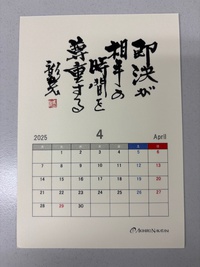 即決が
相手の
時間を
尊重する
2025 4 April
1 2 3 4 5 6
7 8 9 10 11 12 13
14 15 16 17 18 19 20
21 22 23 24 25 26 27
28 29 30